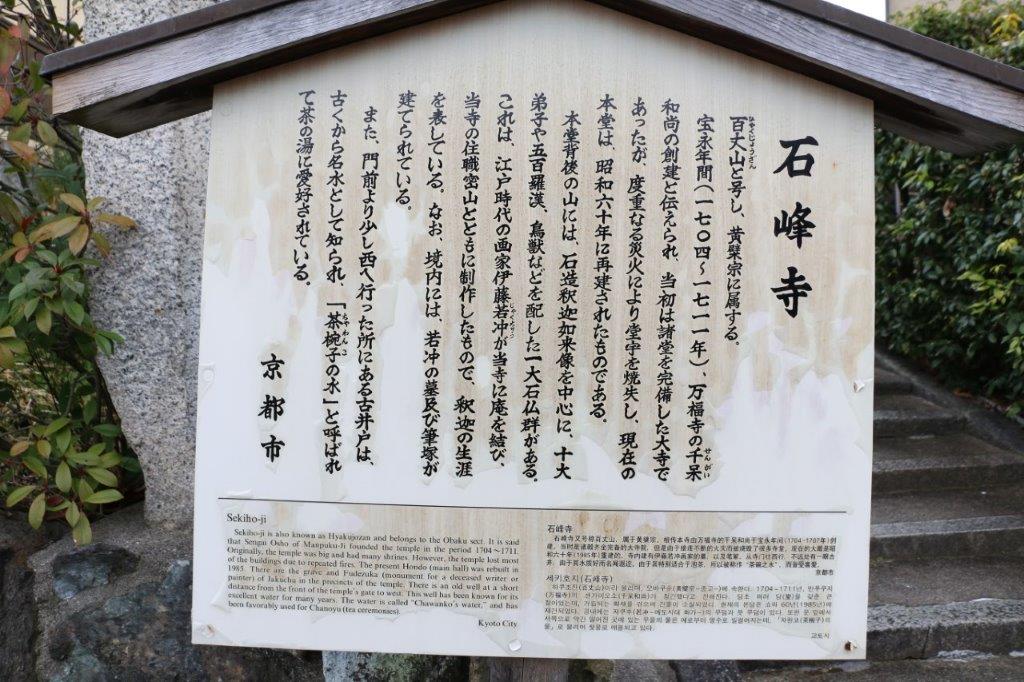 石峰寺
百丈山と号し、黄檗宗に属する。
宝永年間（一七〇四～一七一一年）、万福寺の千呆
和尚の創建と伝えられ、当初は諸堂を完備した大寺で
あったが、度重なる災火により堂宇を焼失し、現在の
本堂は、昭和六十年に再建されたものである。
本堂背後の山には、石造釈迦如来像を中心に、十大
弟子や五百羅漢、鳥獣などを配した一大石仏群がある。
これは、江戸時代の画家伊藤若冲が当寺に庵を結び、
当寺の住職密山とともに制作したもので、釈迦の生涯
を表している。なお、境内には、若冲の墓及び筆塚が
建てられている。
また、門前より少し西へ行った所にある古井戸は、
古くから名水として知られ、「茶椀子の水」と呼ばれ
て茶の湯に愛好されている。
京都市
Sekiho-ji
Sekiho-ji is also known as Hyakujozan and belongs to the Obaku sect. It is said
that Sengai Osho of Manpuku-Ji founded the temple in the period 1704～1711.
Originally, the temple was big and had many shrines. However, the temple lost most
of the buildings due to repeated fires. The present Hondo (main hall) was rebuilt in
1985. There are the grave and Fudezuka (monument for a deceased writer or
painter) of Jakuchu in the precincts of the temple. There is an old well at a short
distance from the front of the temple's gate to west. This well has been known for its
excellent water for many years. The water is called "Chawanko's water," and has
been favorably used for Chanoyu (tea ceremonies).
Kyoto City
石峰寺
京都市
세키호지(石峰寺)
교토시